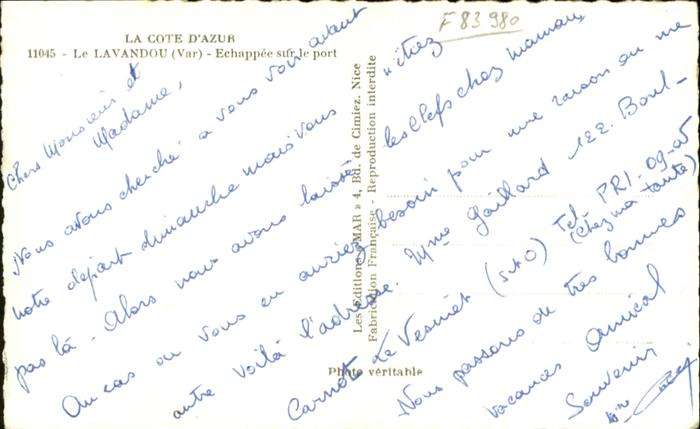 LA COTE D'AZUR
11045 - Le LAVANDOU (Var) - Echappée sur le port
F 83 980
Chers Monsieur et
Madame,
Nous avons cherché a vous voir avant
notre départ dimanche mais vous
pas là - Alors nous avons laissé
les clefs chez maman,
Au cas ou vous en auriez besoin pour une raison ou une
autre voilà l'adresse. Mme Gaillard 122. Boul-
Carnot Le Vesinet (S&O) Tel. PRI-09-05
(Chez ma tante)
Nous passons de très bonnes
vacances Amical
Souvenir
Les Editions « MAR » 4, Bd. de Cimiez, Nice
Fabrication Française - Reproduction interdite
Photo véritable